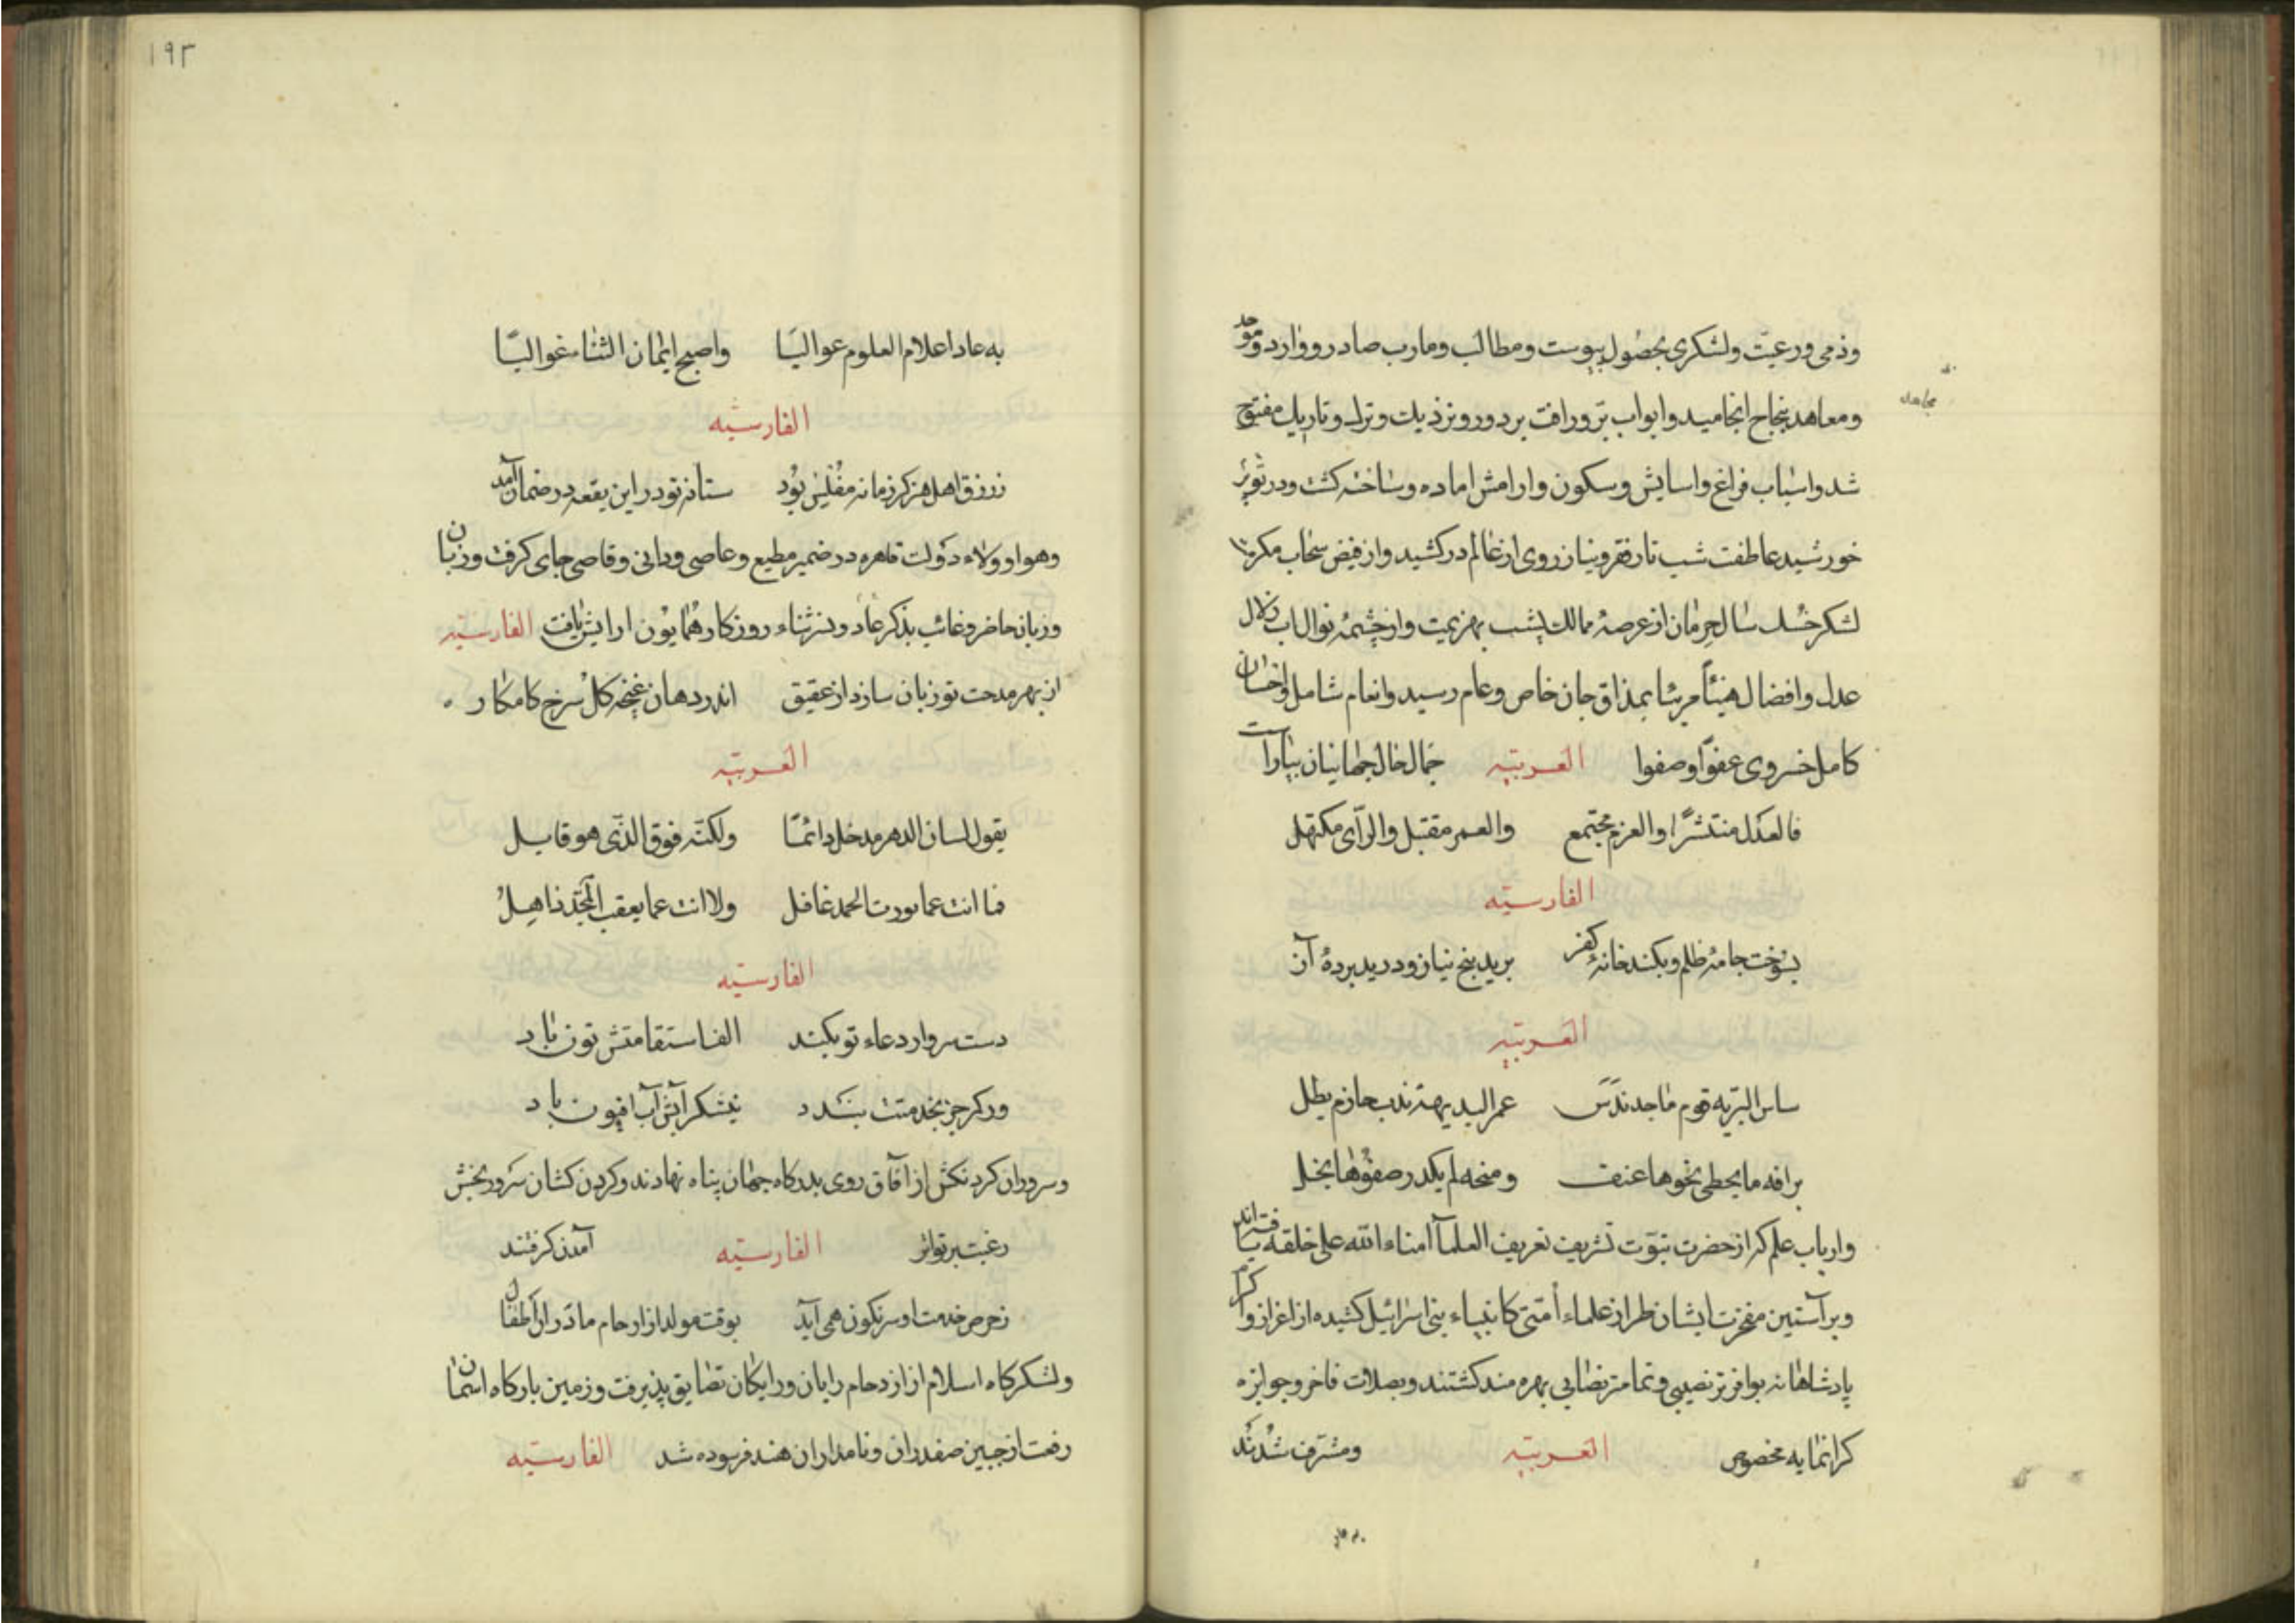 وذمی ورعیت ولشکری بحصول پیوست ومطالب ومارب صادر ووارد وموحد
ومعاهد بنجاح انجامید وابواب بر ورافت بر دور ونزدیك وترك وتاریك مفتوح
مجاهد
شد واسباب فراغ واسایش وسکون وارامش اماده وساخته کشت ودر
خورشید عاطفت شب تار فقر ونیاز روی از عالم درکشید واز فیض سحاب مکرمت
لشکر حرمان از عرصهٔ ممالك بهزیمت واز چشمهٔ نوال اب زلال
عدل وافضال هنیئاً مریئا بمذاق جان خاص وعام رسید وانعام شامل واحسان
کامل خسروی عفوًا وصفوا العربیه جمال حال جهانیان بیاراست
فالعدل منتشرًا والعزم مجتمع والعمر مقتبل والرّأی مکتهل
الفارسیّه
بسوخت جامهٔ ظلم وبکند خانهٔ کفر برید بیخ نیاز ودرید پردهٔ آز
العربیّه
ساس البریّه قوم ماجد ندس غمر البدیهة ندب حازم بطل
برافه ما یخطی نحوها عنف ومنحه لم یکدر صفوها بخل
وارباب علم که از حضرت نبوّت تشریف تعریف العلمآ امناء الله علی خلقه یافته‌اند
وبر آستین مفخرت ایشان طراز علماء أمّتی کانبیاء بنی اسرائیل کشیده از اعزاز واکرام
پادشاهانه بوافرتر نصیبی وتمامتر نصابی بهره‌مند کشتند وبصلات فاخر وجوایزه
کرانمایه مخصوص العربیّه ومشرّف شدند
به عاد
١٩٢
به عاد اعلام العلوم عوالیًا واصبح ایمان الثنا غوالیًا
الفارسیّه
زرزق اهل هنر کر زمانه مفلس بود ستانهٔ تو در این بقعه در ضمان آمد
وهوا وولاء دولت قاهره در ضمیر مطیع وعاصی ودانی وقاصی جای کرفت وزبان
وزبان حاضر وغائب بذکر عاد ونشر ثناء روزکار همایون ارایش یافت الفارسیّه
از بهر مدحت تو زبان سازد از عقیق اندر دهان غنچه کل سرخ کامکار
العربیّه
یقول لسان الدهر مدحك دائمًا ولکنّه فوق الذّی هو قایل
فما انت عما یورث الحمد غافل ولا انت عما یعقب المجد ذاهل
الفارسیّه
دست سرو ار دعاء تو بکند الف استقامتش نون باد
ورکر جز بخدمتت بندد نیشکر آبش آب افیون باد
وسروران کردنکش از آفاق روی بدرکاه جهان پناه نهادند وکردن کشان سرور بخش
رغبت بر تواتر الفارسیّه آمدن کرفتند
زحرص خدمت او سرنکون همی آید بوقت مولد از ارحام مادران اطفال
ولشکرکاه اسلام از ازدحام رایان ورایکان تضایق پذیرفت وزمین بارکاه اسمان
رفعت از جبین صفدران ونامداران هند فرسوده شد الفارسیّه